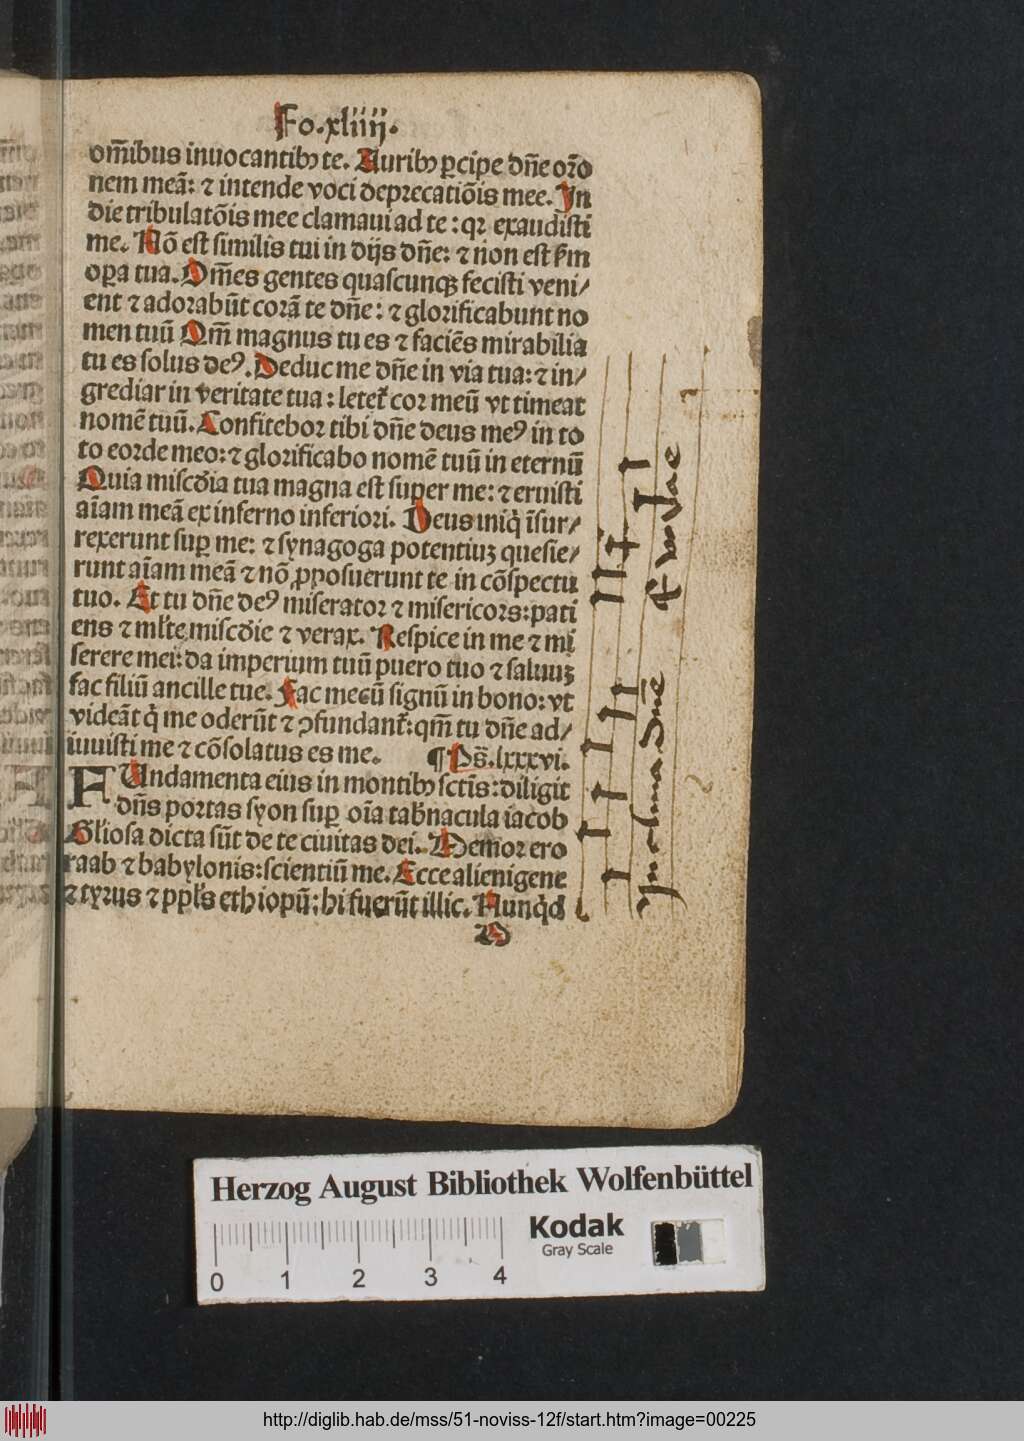 Fo.xliiij.
om̅ibus inuocantibꝫ te. Auribꝫ ꝑcipe dn̄e oꝛō
nem meā: ⁊ intende voci depꝛecatiōis mee. In
die tribulatōis mee clamaui ad te : qꝛ exaudisti
me. Nō est similis tui in dijs dn̄e: ⁊ non est ẜm
oꝑa tua. Om̅es gentes quascunqꝫ fecisti veni/
ent ⁊ adoꝛabūt coꝛā te dn̄e: ⁊ gloꝛificabunt no
men tuū Qm̅ magnus tu es ⁊ faciēs mirabilia
tu es solus deꝰ. Deduc me dn̄e in via tua: ⁊ in/
grediar in veritate tua : letet᷑ coꝛ meū vt timeat
nomē tuū. Confiteboꝛ tibi dn̄e deus meꝰ in to
to eoꝛde meo: ⁊ gloꝛificabo nomē tuū in eternū
Quia misc̄dia tua magna est super me: ⁊ eruisti
aīam meā ex inferno inferioꝛi. Deus iniq̇ īsur/
rexerunt suꝑ me: ⁊ synagoga potentiuꝫ quesie/
runt aīam meā ⁊ nō ꝓposuerunt te in cōspectu
tuo. Et tu dn̄e deꝰ miseratoꝛ ⁊ misericoꝛs: pati
ens ⁊ ml̅te misc̄die ⁊ verax. Respice in me ⁊ mi
serere mei: da imperium tuū puero tuo ⁊ saluuꝫ
fac filiū ancille tue. Fac mecū signū in bono: vt
videāt q̇ me oderūt ⁊ ꝯfundant᷑: qm̅ tu dn̄e ad/
iuuisti me ⁊ cōsolatus es me. ¶ Ps̄. lxxxvi.
FUndamenta eius in montibꝫ sctīs: diligit
dn̄s poꝛtas syon suꝑ oīa tab̄nacula iacob
Gl̅iosa dicta sūt de te ciuitas dei. Memoꝛ ero
raab ⁊ babylonis: scientiū me. Ecce alienigene
⁊ tyrus ⁊ ppl̅s ethiopū: hi fuerūt illic. Nunqd̄
Herzog August Bibliothek Wolfenbüttel
Kodak
Gray Scale
0 1 2 3 4
http://diglib.hab.de/mss/51-noviss-12f/start.htm?image=00225